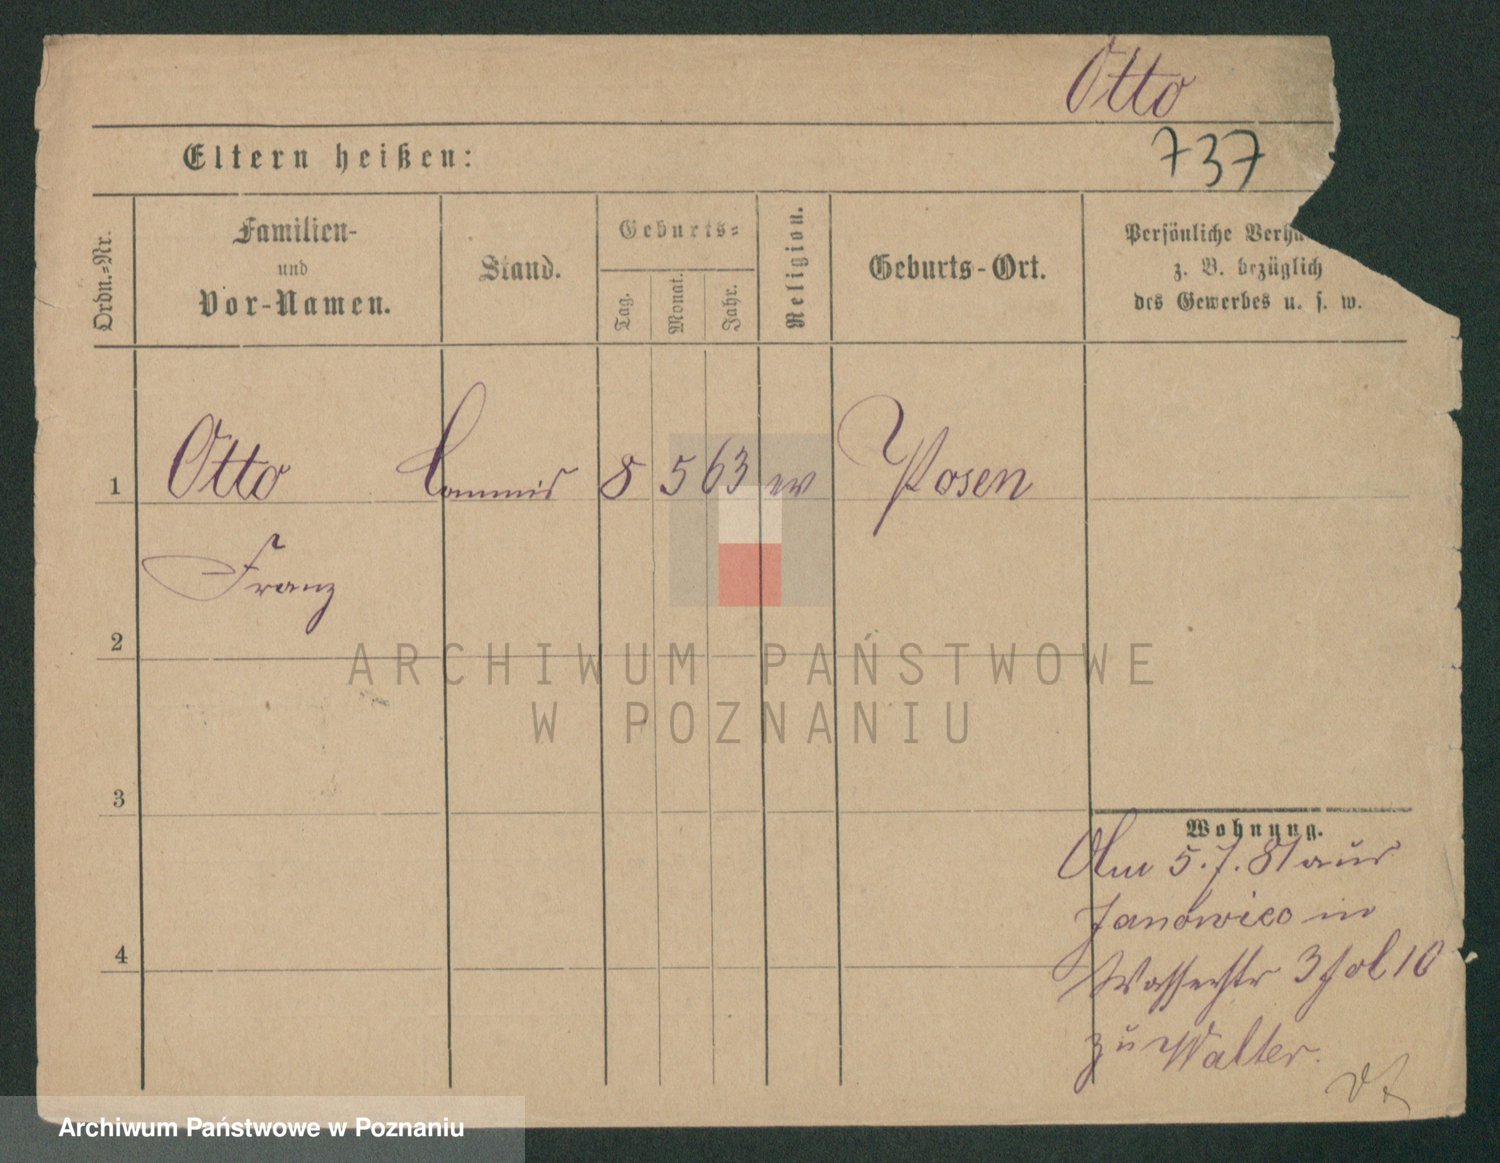 Otto
737
Eltern heißen:
Ordn.-Nr.
Familien-
und
Vor-Namen.
Stand.
Geburts-
Tag.
Monat.
Jahr.
Religion.
Geburts-Ort.
Persönliche Verhä
z. B. bezüglich
des Gewerbes u. s. w.
1 Otto Commis 8 5 63 ev Posen
Franz
2
3
4
Wohnung.
Am 5.7.81 aus
Janowiec in
Wasserstr 3 fol 10
zu Walter.
ARCHIWUM PAŃSTWOWE
W POZNANIU
Archiwum Państwowe w Poznaniu